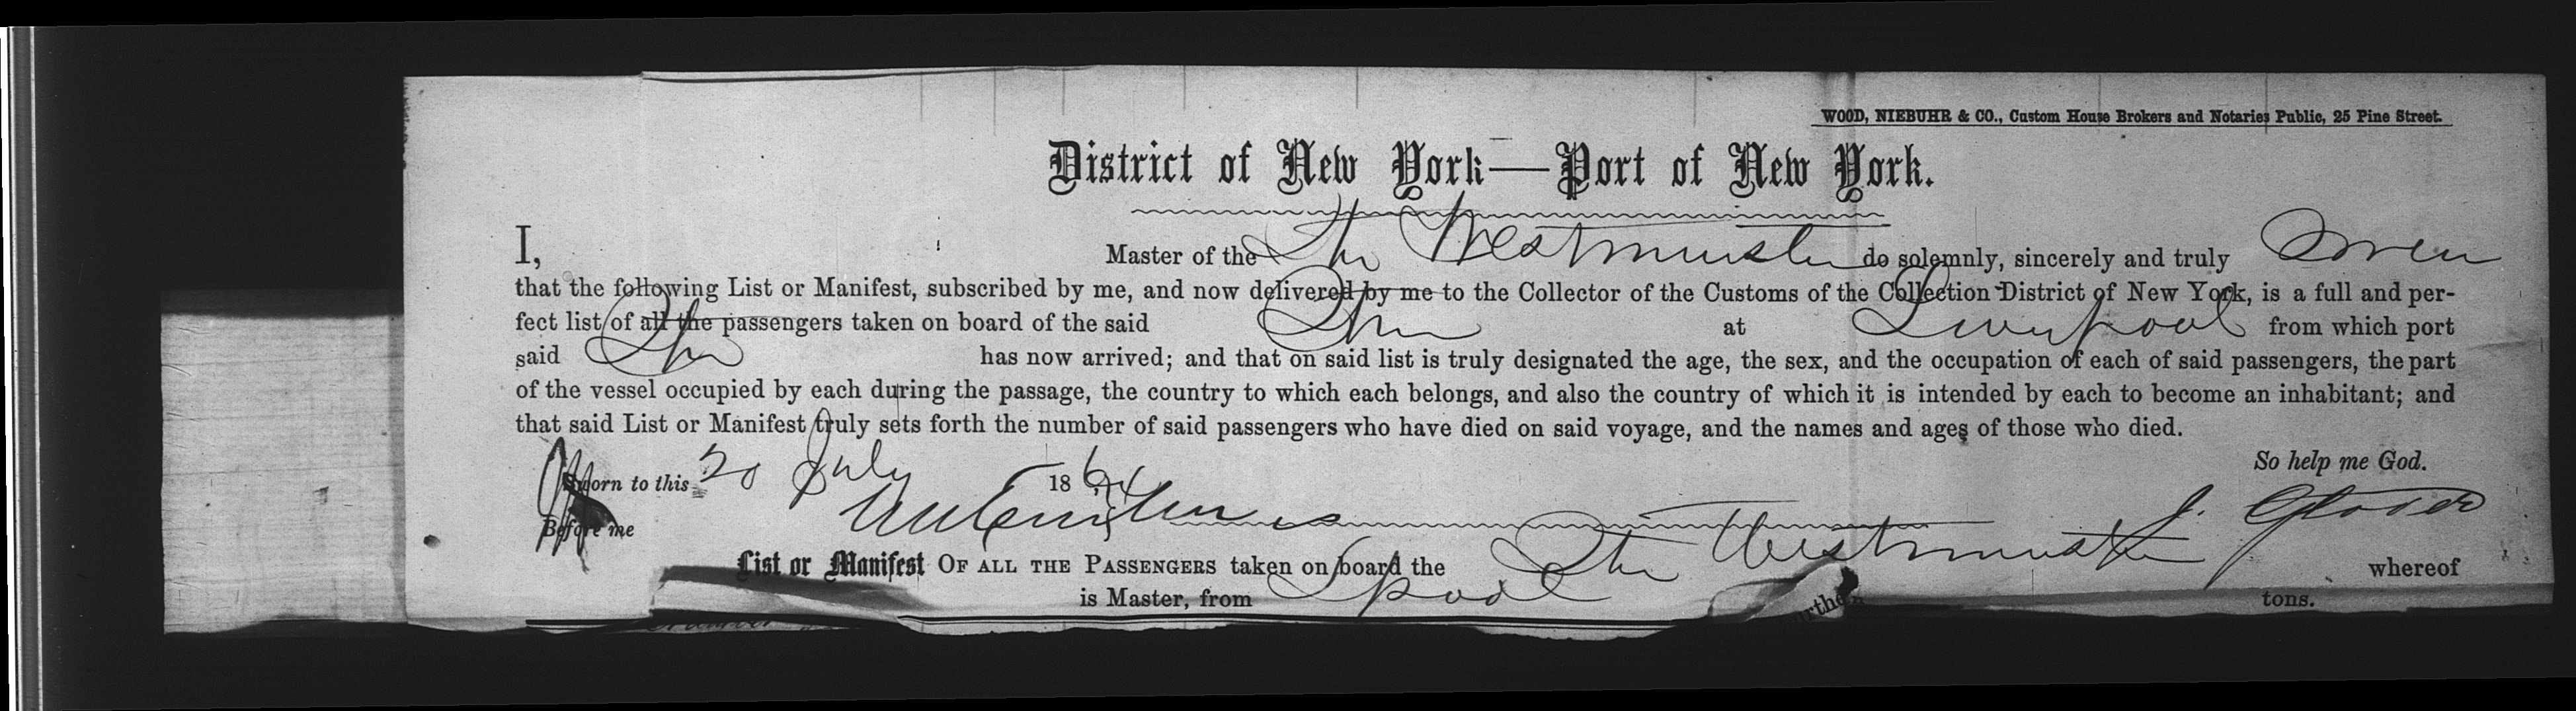 WOOD, NIEBUHR & CO., Custom House Brokers and Notaries Public, 25 Pine Street.
District of New York—Port of New York.
I, Master of the Shp Westminster do solemnly, sincerely and truly Swear
that the following List or Manifest, subscribed by me, and now delivered by me to the Collector of the Customs of the Collection District of New York, is a full and per-
fect list of all the passengers taken on board of the said Shp at Liverpool from which port
said Shp has now arrived; and that on said list is truly designated the age, the sex, and the occupation of each of said passengers, the part
of the vessel occupied by each during the passage, the country to which each belongs, and also the country of which it is intended by each to become an inhabitant; and
that said List or Manifest truly sets forth the number of said passengers who have died on said voyage, and the names and ages of those who died.
So help me God.
Sworn to this 20 July 1864
Before me
J. Glover
List or Manifest OF ALL THE PASSENGERS taken on board the Shp Westminster whereof
is Master, from Lpool tons.